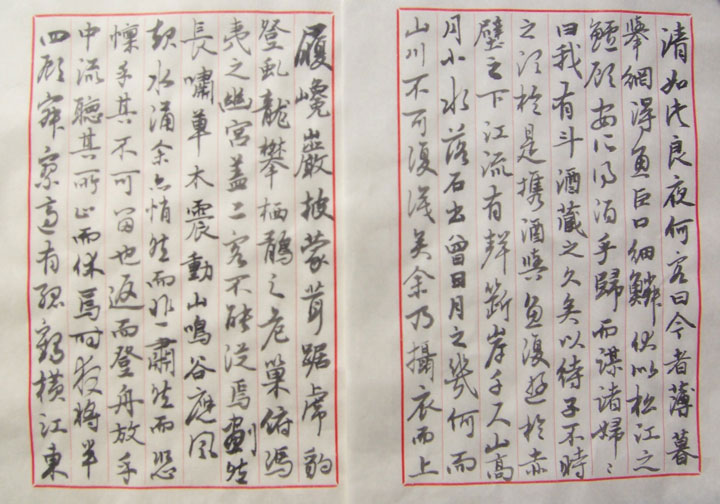 清如此良夜何客曰今者薄暮
舉網得魚巨口細鱗狀似松江之
鱸顧安所得酒乎歸而謀諸婦〻
曰我有斗酒藏之久矣以待子不時
之須於是攜酒與魚復遊於赤
壁之下江流有聲斷岸千尺山高
月小水落石出曾日月之幾何而
山川不可復識矣余乃攝衣而上
履巉巖披蒙茸踞虎豹
登虬龍攀栖鶻之危巢俯馮
夷之幽宮蓋二客不能從焉劃然
長嘯草木震動山鳴谷應風
起水涌余亦悄然而悲肅然而恐
懍乎其不可留也返而登舟放乎
中流聽其所止而休焉時夜將半
四顧寂寥適有孤鶴橫江東